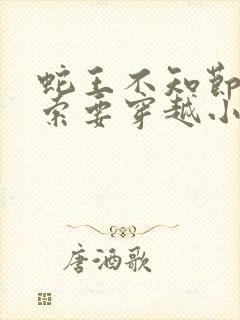 蛇王不知节
索要穿越小
唐酒歌